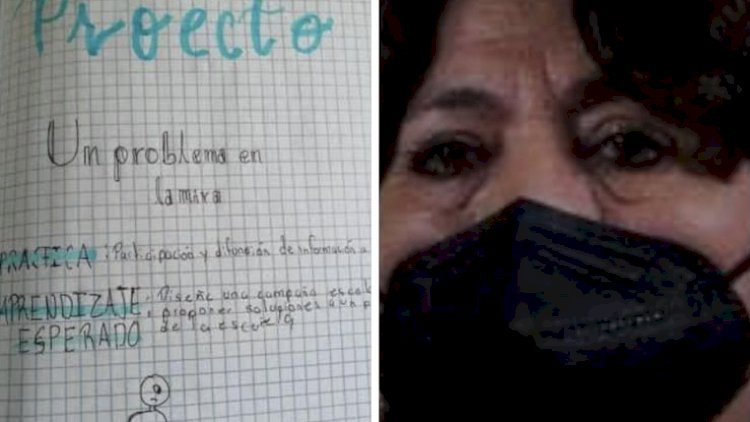 Proecto
Un problema en
la mira
PRACTICA: Participación y difusión de información a
APRENDIZAJE: Diseñe una campaña escol
ESPERADO proponer soluciones a un p
de la escuela